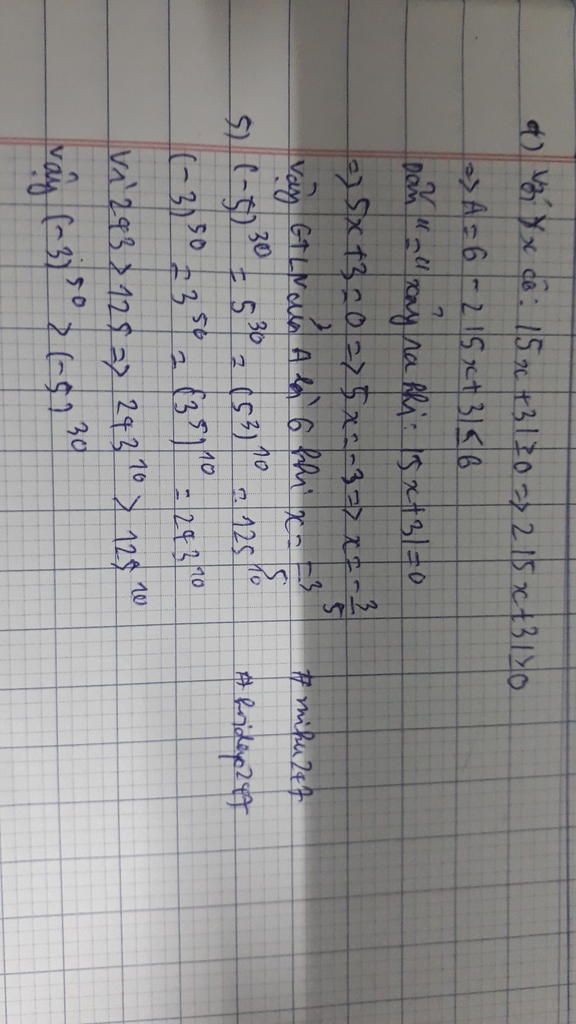 d) Với ∀x có: |5x+3|≥0 => 2|5x+3|≥0
=> A = 6 - 2|5x+3|≤6
Dấu "=" xảy ra khi: |5x+3|=0
=> 5x+3=0 => 5x=-3 => x=-3/5
Vậy GTLN của A là 6 khi x=-3/5 #mihu247
5) (-5)^30 = 5^30 = (5^3)^10 = 125^10 #hoidap247
(-3)^50 = 3^50 = (3^5)^10 = 243^10
Vì 243 > 125 => 243^10 > 125^10
Vậy (-3)^50 > (-5)^30